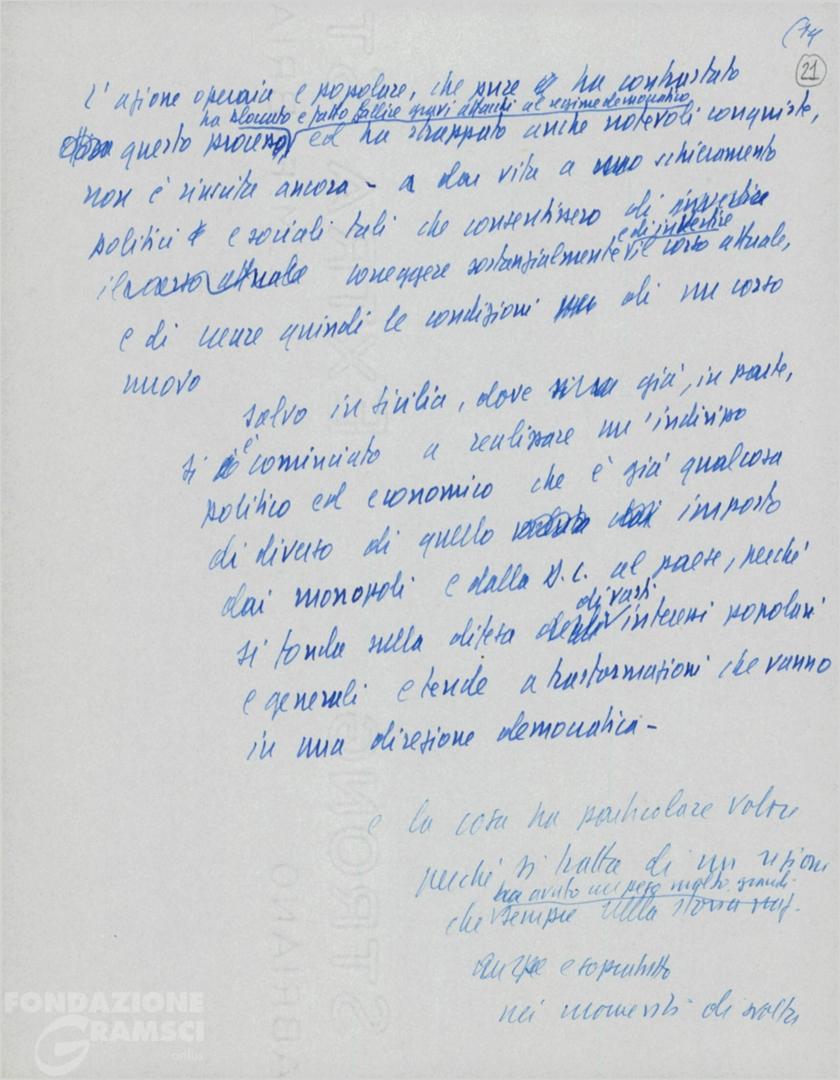 (14
21
L'azione operaia e popolare, che pure ha contrastato
ha bloccato e fatto fallire gravi attacchi al regime democratico
questo processo ed ha strappato anche notevoli conquiste,
non è riuscita ancora - a dar vita a uno schieramento
politici e sociali tali che consentissero di invertire
e di invertire
il corso attuale correggere sostanzialmente il corso attuale,
e di creare quindi le condizioni di un corso
nuovo
Salvo in Sicilia, dove già, in parte,
si è cominciato a realizzare un'indirizzo
politico ed economico che è già qualcosa
di diverso di quello imposto
dai monopoli e dalla D.C. al paese, perché
di vasti
si fonda sulla difesa degli interessi popolari
e generali e tende a trasformazioni che vanno
in una direzione democratica -
e la cosa ha particolare valore
perché si tratta di un regione
ha avuto un peso molto grande
che sempre nella storia
anche e soprattutto
nei momenti di svolta
FONDAZIONE
GRAMSCI
onlus